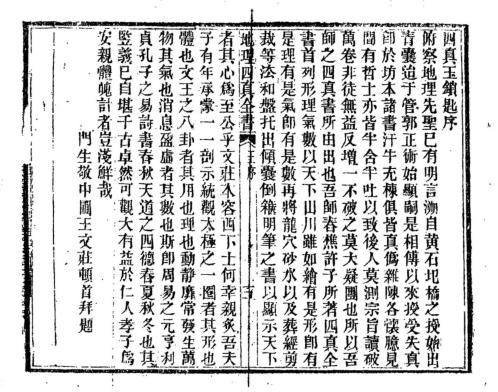 四真玉鎖匙序
俯察地理先聖已有明言溯自黃石圯橋之授始出
青囊迨于管郭正術始顯嗣是相傳以來授受失真
師於坊本諸書汗牛充棟俱皆真僞雜陳各讓臆見
間有哲士亦皆半含半吐以致後人莫測宗旨讀破
萬卷非徒無益反增一不破之莫大疑團也所以吾
師之四真書所由出也吾師春樵許子所著四真全
書首列形理氣數以天下山川雖如繪有是形卽有
是理有是氣卽有是數再將龍穴砂水以及葬經剪
裁等法和盤托出傾囊倒篋明筆之書以顯示天下
地理四真全書 序
者其心爲至公乎文莊本容西下士何幸親炙吾夫
子有年承蒙一一剖示統觀太極之一圈者其形也
體也文王之八卦者其用也理也動靜靡常發生萬
物其氣也消息盈虛者其數也斯卽周易之元亨利
貞孔子之易詩書春秋天道之四德春夏秋冬也其
豎義已自堪千古卓然可觀大有益於仁人孝子爲
安親體魄計者豈淺鮮哉
門生敬中圃王文莊頓首拜題